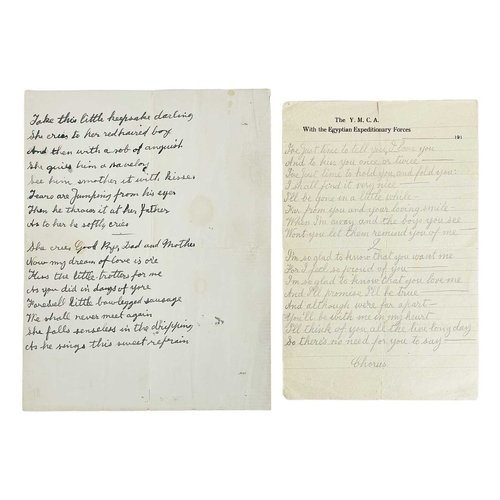 Take this little keepsake darling
She cries to her redhaired boy
And then with a sob of anguish
She gives him a saveloy
See him smother it with kisses
Tears are Jumping from his eyes
Then he throws it at her father
As to her he softly cries
She cries Good Bye, Dad and Mother
Now my dream of love is ore
Kiss the little trotters for me
As you did in days of yore
Farewell little bow-legged sausage
We shall never meet again
She falls senseless in the dripping
As he sings this sweet refrain
The Y. M. C. A.
With the Egyptian Expeditionary Forces
191
I've just time to tell you, I love you
And to kiss you once or twice
I've just time to hold you and fold you
I shall find it very nice
I'll be gone in a little while
Far from you and your loving smile
When I'm away and the boys you see
Wont you let them remind you of me
2
I'm so glad to know that you want me
For I feel so proud of you
I'm so glad to know that you love me
And I'll promise I'll be true
And although we're far apart
You'll be with me in my heart
I'll think of you all the live long day
So there's no need for you to say
Chorus